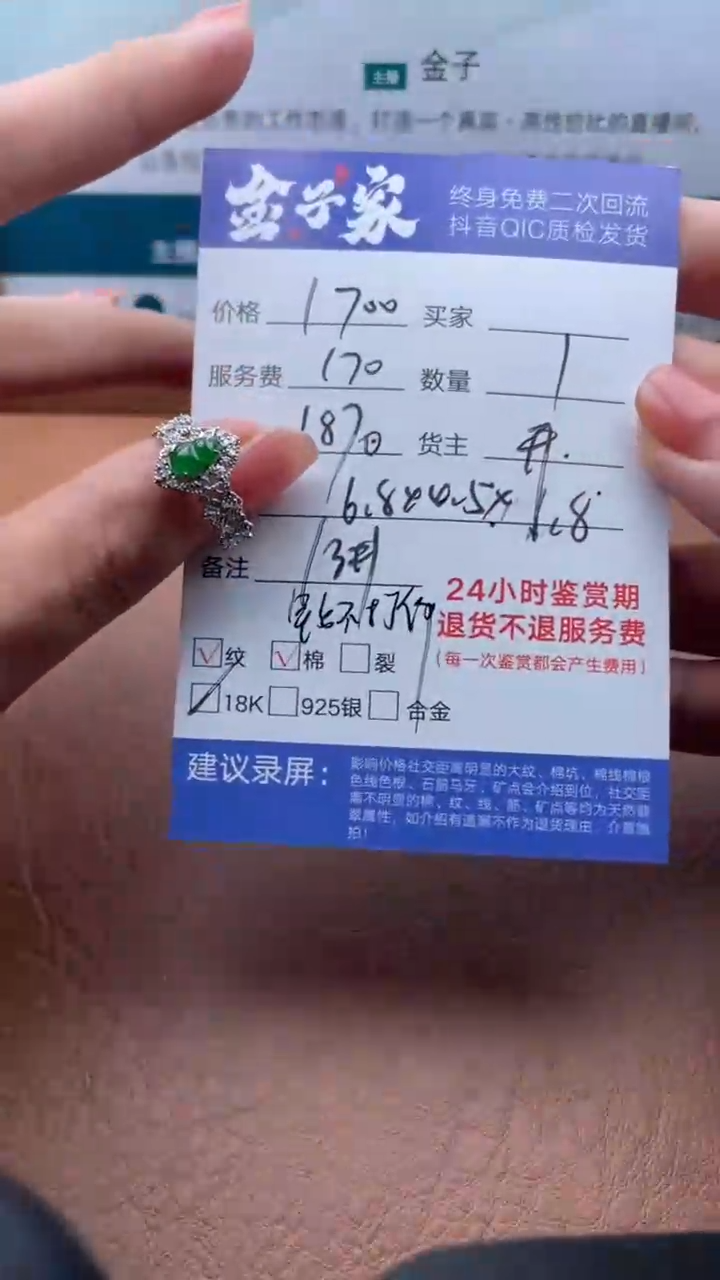 主播 金子
打造一个真实·高性价比的直播间
金子家
终身免费二次回流
抖音QIC质检发货
价格 1700 买家
服务费 170 数量 1
187 货主
6.8x4.5x1.8
备注
24小时鉴赏期
退货不退服务费
(每一次鉴赏都会产生费用)
纹 棉 裂
18K 925银 合金
建议录屏:
影响价格社交距离明显的大纹、棉坑、棉线棉根
色线色根、石筋马牙、矿点会介绍到位,社交距
离不明显的棉、纹、线、筋、矿点等均为天然翡
翠属性,如介绍有遗漏不作为退货理由,介意慎
拍!